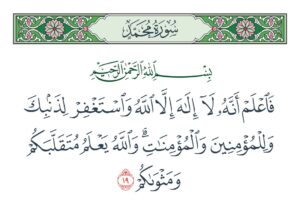 سُورَةُ مُحَمَّدٍ
بِسْمِ اللَّهِ الرَّحْمَٰنِ الرَّحِيمِ
فَٱعْلَمْ أَنَّهُۥ لَآ إِلَٰهَ إِلَّا ٱللَّهُ وَٱسْتَغْفِرْ لِذَنۢبِكَ
وَلِلْمُؤْمِنِينَ وَٱلْمُؤْمِنَٰتِۗ وَٱللَّهُ يَعْلَمُ مُتَقَلَّبَكُمْ
وَمَثْوَىٰكُمْ ١٩